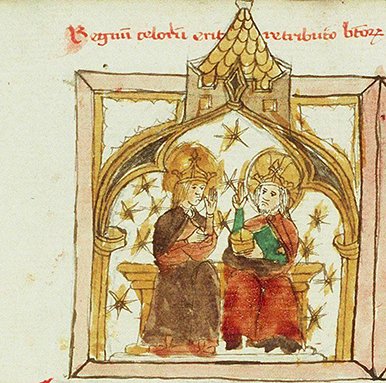 Regnū celorū erit retributio btorꝝ